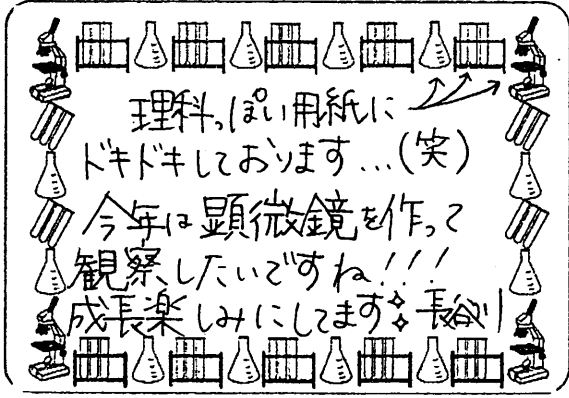 理科っぽい用紙に
ドキドキしております…(笑)
今年は顕微鏡を作って
観察したいですね!!!
成長楽しみにしてます✧ 長谷川